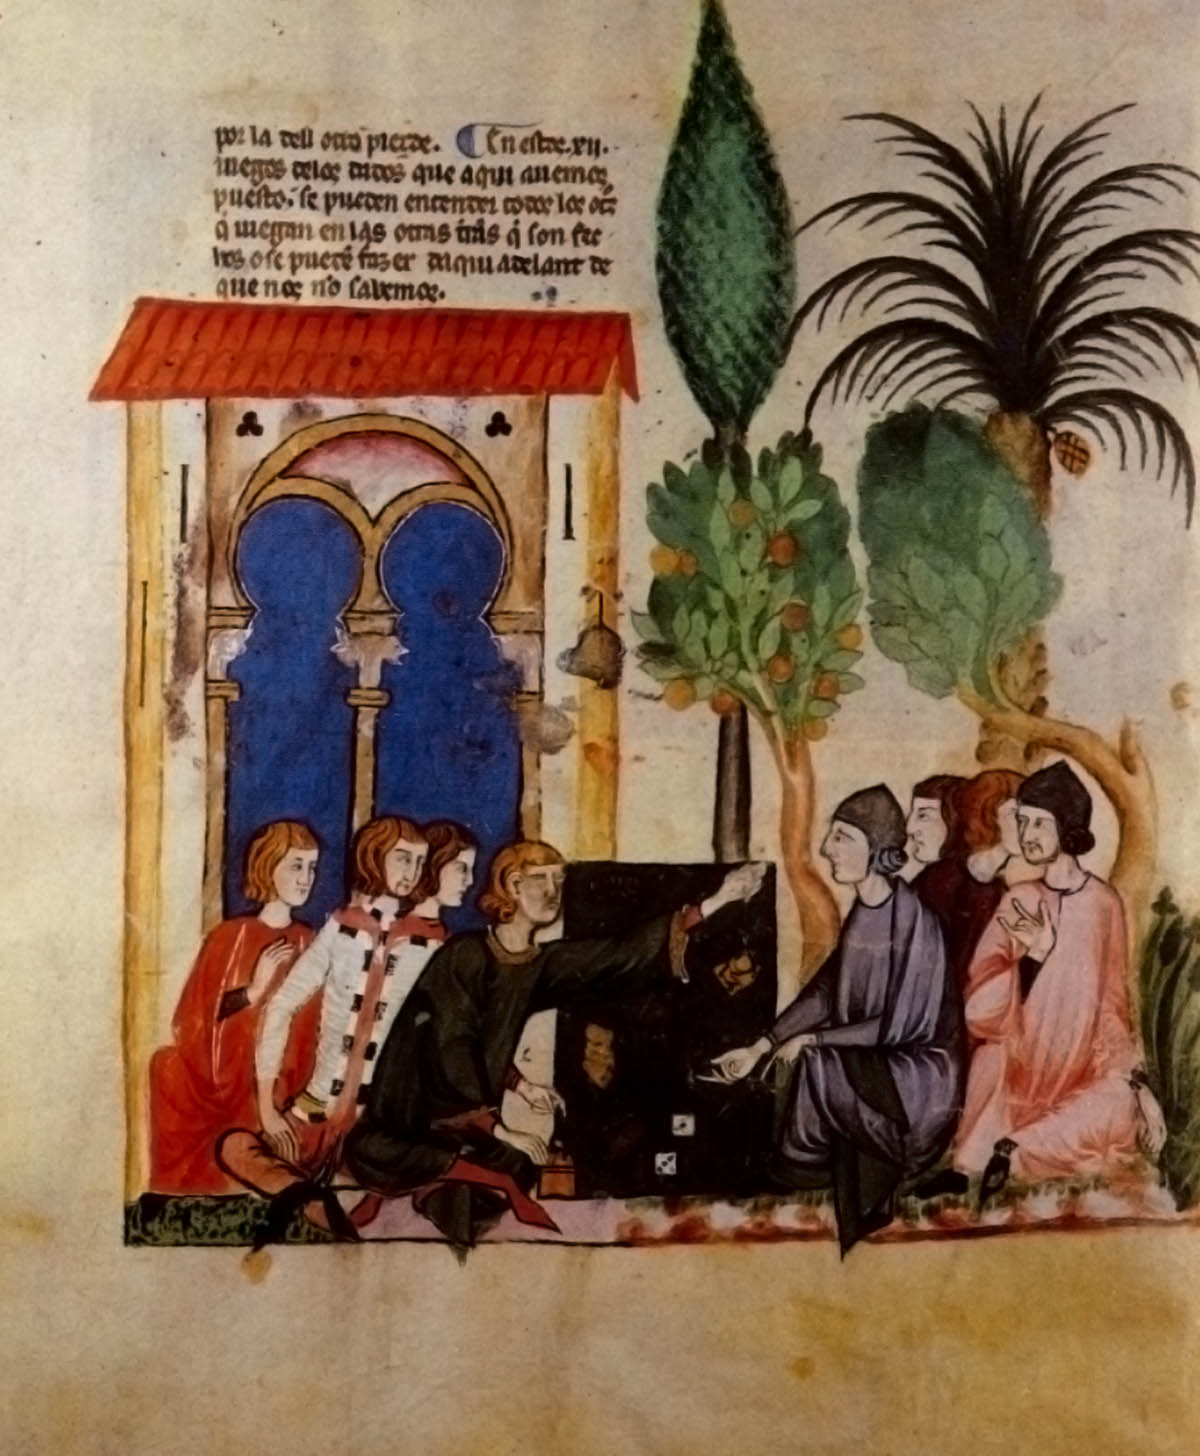 por la dell otro pierde. En estos .xii.
iuegos delos dados que aqui auemos
puesto; se pueden entender todos los otros
q̃ iuegan en las otras t̃ras q̃ son fec
hos o se puedẽ fazer daqui adelant de
que nos nõ sabemos.